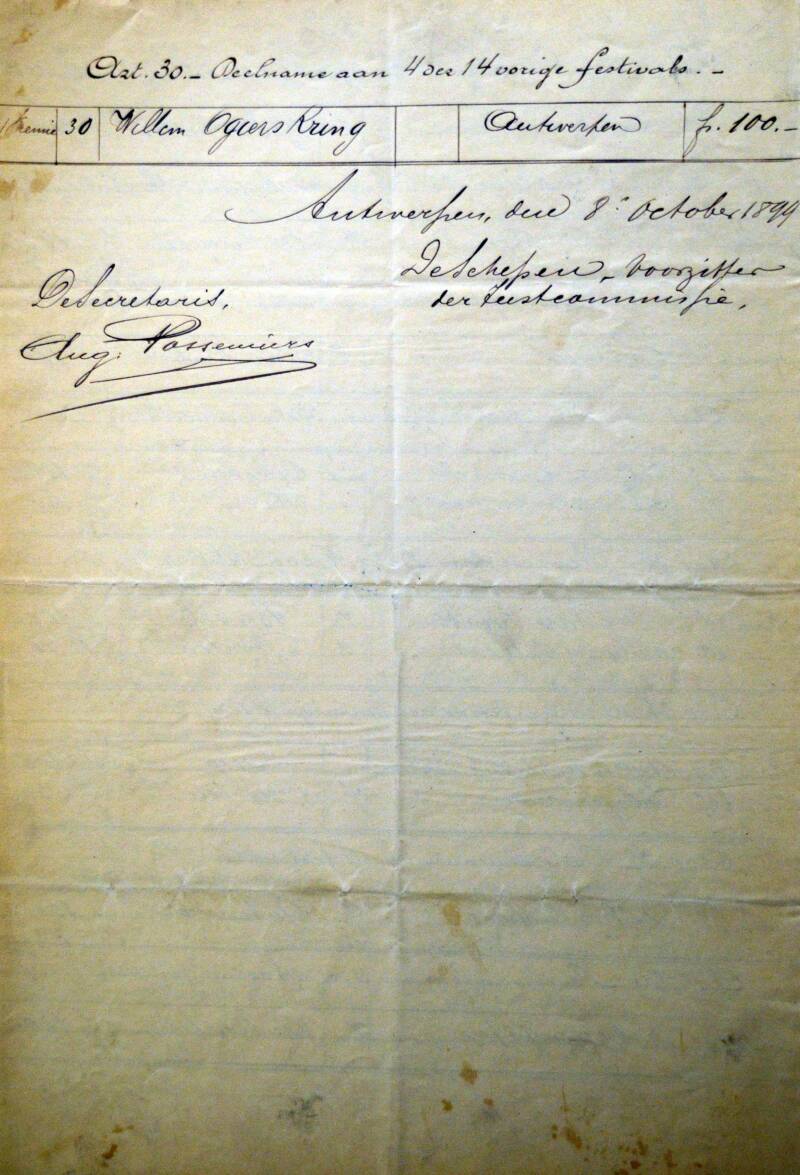 Art. 30. – Deelname aan 4 der 14 vorige festivals. –
1 Premie 30 Willem Ogiers Kring Antwerpen fr. 100.–
Antwerpen, den 8n October 1894
De Schepen – Voorzitter
De Secretaris, der Feestcommissie,
Aug. Possemiers